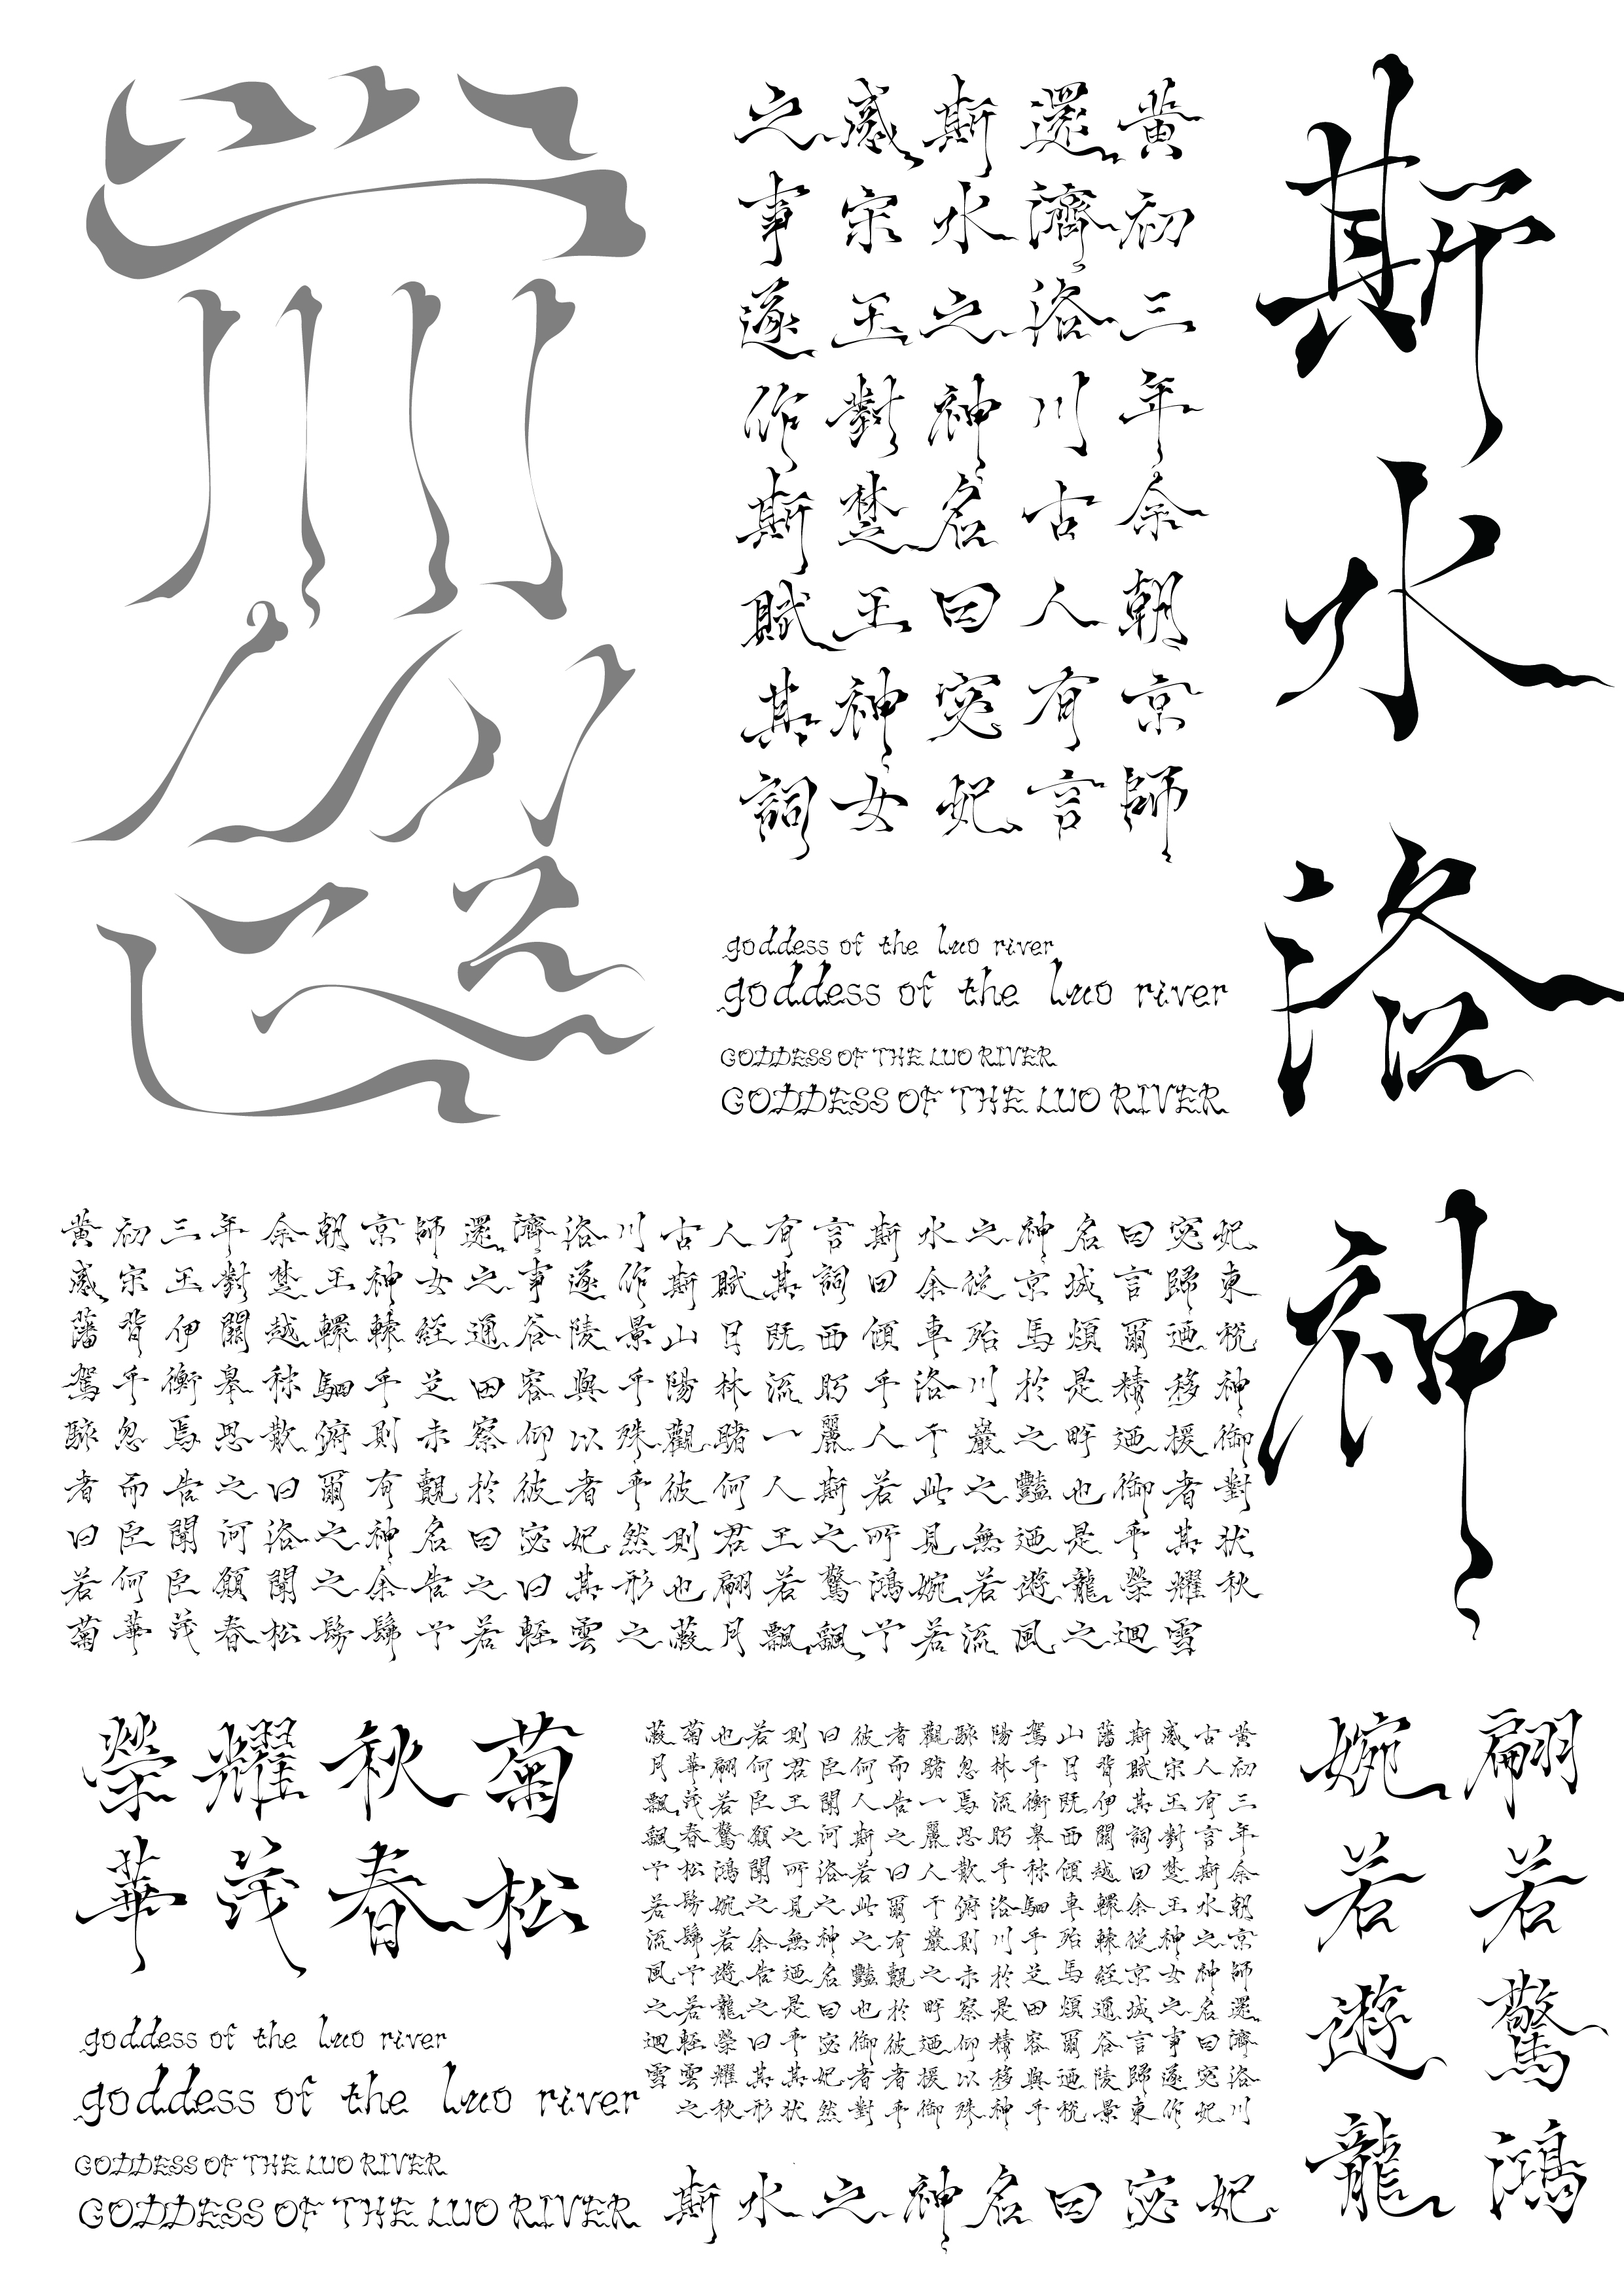 斯水洛神
黃初三年余朝京師
還濟洛川古人有言
斯水之神名曰宓妃
感宋玉對楚王神女
之事遂作斯賦其詞
goddess of the luo river
goddess of the luo river
GODDESS OF THE LUO RIVER
GODDESS OF THE LUO RIVER
黃初三年余朝京師還濟洛川古人有言斯水之神名曰宓妃
感宋玉對楚王神女之事遂作斯賦其詞曰余從京域言歸東
藩背伊闕越轘轅經通谷陵景山日既西傾車殆馬煩爾迺稅
駕乎衡皋秣駟乎芝田容與乎陽林流眄乎洛川於是精移神
駭忽焉思散俯則未察仰以殊觀睹一麗人于巖之畔迺援御
者而告之曰爾有覿於彼者乎彼何人斯若此之豔也御者對
曰臣聞河洛之神名曰宓妃然則君王之所見無迺是乎其狀
若何臣願聞之余告之曰其形也翩若驚鴻婉若遊龍榮耀秋
菊華茂春松髣髴兮若輕雲之蔽月飄飖兮若流風之迴雪
榮耀秋菊
華茂春松
goddess of the luo river
goddess of the luo river
GODDESS OF THE LUO RIVER
GODDESS OF THE LUO RIVER
黃初三年余朝京師還濟洛川
古人有言斯水之神名曰宓妃
感宋玉對楚王神女之事遂作
斯賦其詞曰余從京域言歸東
藩背伊闕越轘轅經通谷陵景
山日既西傾車殆馬煩爾迺稅
駕乎衡皋秣駟乎芝田容與乎
陽林流眄乎洛川於是精移神
駭忽焉思散俯則未察仰以殊
觀睹一麗人于巖之畔迺援御
者而告之曰爾有覿於彼者乎
彼何人斯若此之豔也御者對
曰臣聞河洛之神名曰宓妃然
則君王之所見無迺是乎其狀
若何臣願聞之余告之曰其形
也翩若驚鴻婉若遊龍榮耀秋
菊華茂春松髣髴兮若輕雲之
蔽月飄飖兮若流風之迴雪
斯水之神名曰宓妃
翩若驚鴻
婉若遊龍